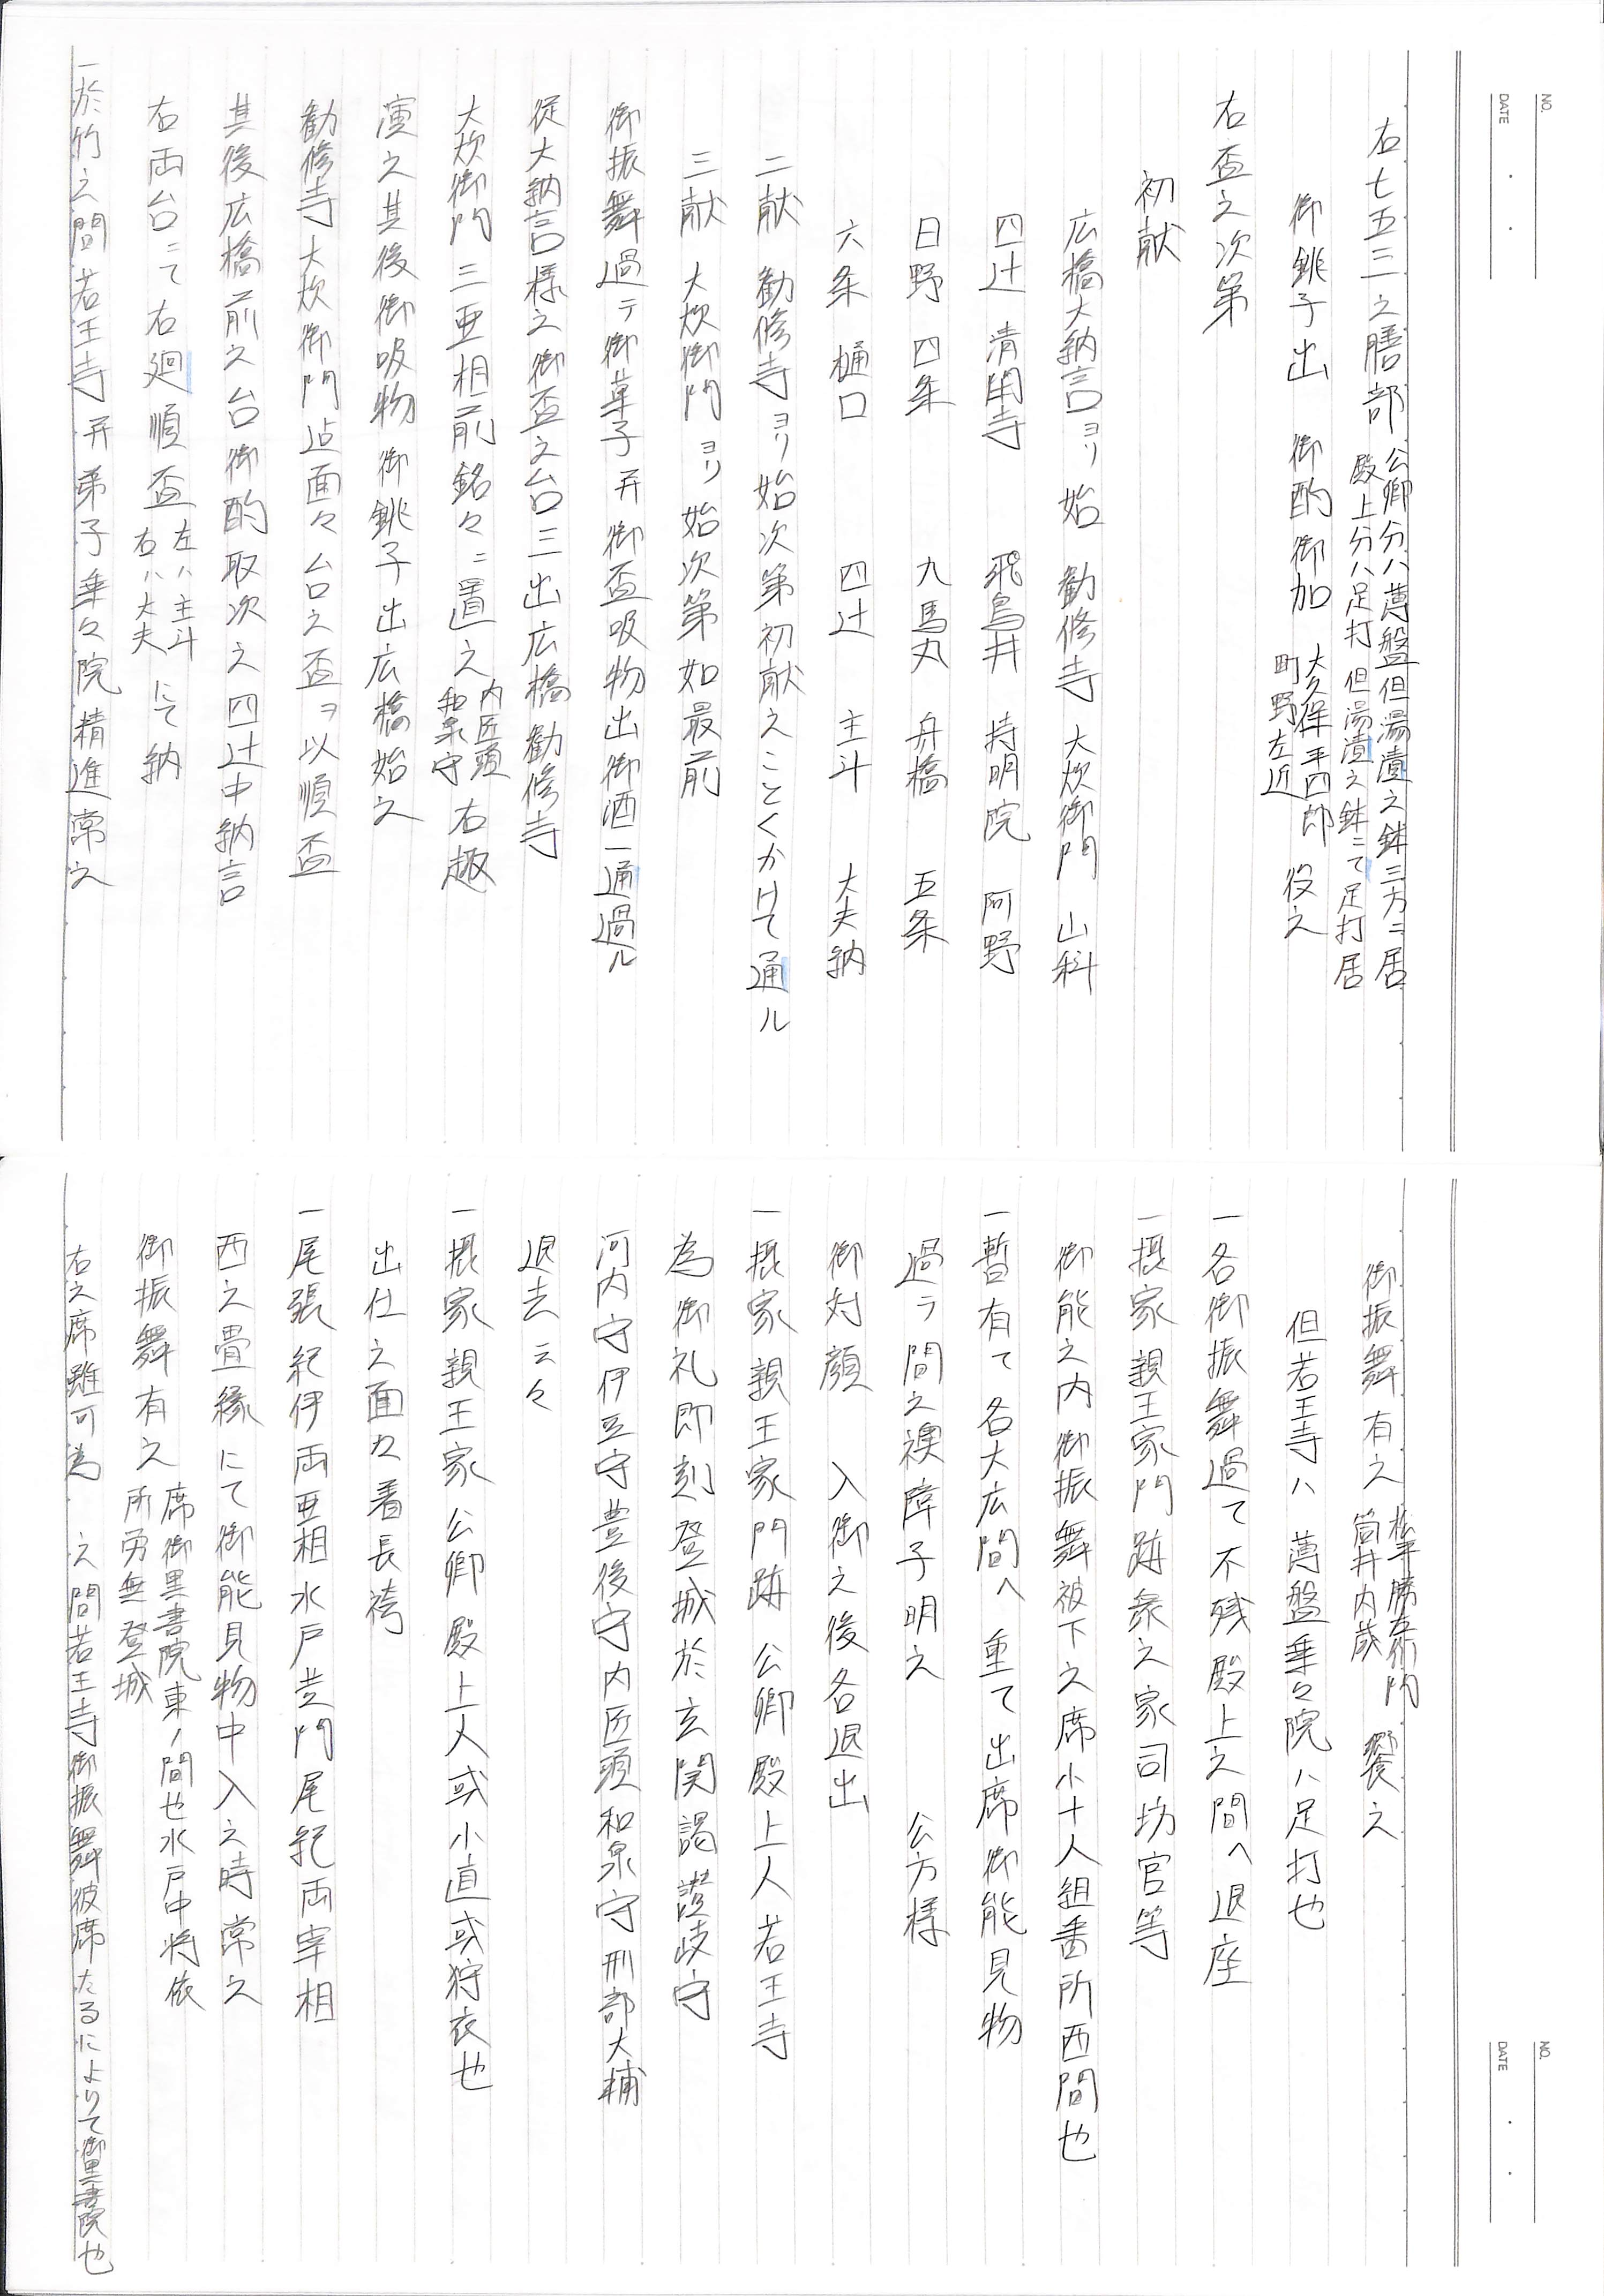 NO.
DATE
右七五三之膳部 公卿分ハ薄盤但湯漬之鉢三方ニ居
殿上分ハ足打但湯漬之鉢ニて足打居
御銚子出 御酌御加 大久保平四郎
町野左近 役之
右盃之次第
初献
広橋大納言ヨリ始 勧修寺 大炊御門 山科
四辻 清閑寺 飛鳥井 持明院 阿野
日野 四条 九馬丸 舟橋 五条
六条 樋口 四辻 主斗 大夫納
二献 勧修寺ヨリ始次第初献えことくかけて通ル
三献 大炊御門ヨリ始次第如最前
御振舞過テ御菓子并御盃吸物出御酒一通過ル
従大納言様之御盃之台三出広橋勧修寺
大炊御門三亜相前銘々ニ置之 内匠頭
和泉守 右趣
演之其後御吸物御銚子出広橋始之
勧修寺大炊御門迠面々台之盃ヲ以順盃
其後広橋前之台御酌取次之四辻中納言
右両台ニて右廻順盃 左ハ主斗
右ハ大夫 にて納
一於竹之間若王寺并弟子乗々院精進常之
NO.
DATE
御振舞有之 松平勝左衛門
筒井内蔵 饗之
但若王寺ハ薄盤乗々院ハ足打也
一各御振舞過て不残殿上之間へ退座
一摂家親王家門跡衆之家司坊官等
御能之内御振舞被下之席小十人組番所西間也
一暫有て各大広間へ重て出席御能見物
過テ間之襖障子明之 公方様
御対顔 入御之後各退出
一摂家親王家門跡公卿殿上人若王寺
為御礼即刻登城於玄関謁讃岐守
河内守伊豆守豊後守内匠頭和泉守刑部大輔
退去云々
一摂家親王家公卿殿上人或小直或狩衣也
出仕之面々着長袴
一尾張紀伊両亜相水戸黄門尾紀両宰相
西之畳縁にて御能見物中入之時常之
御振舞有之 席御黒書院東ノ間也水戸中将依
所労無登城
右之席雖可為 之間若王寺御振舞彼席たるによりて御黒書院也